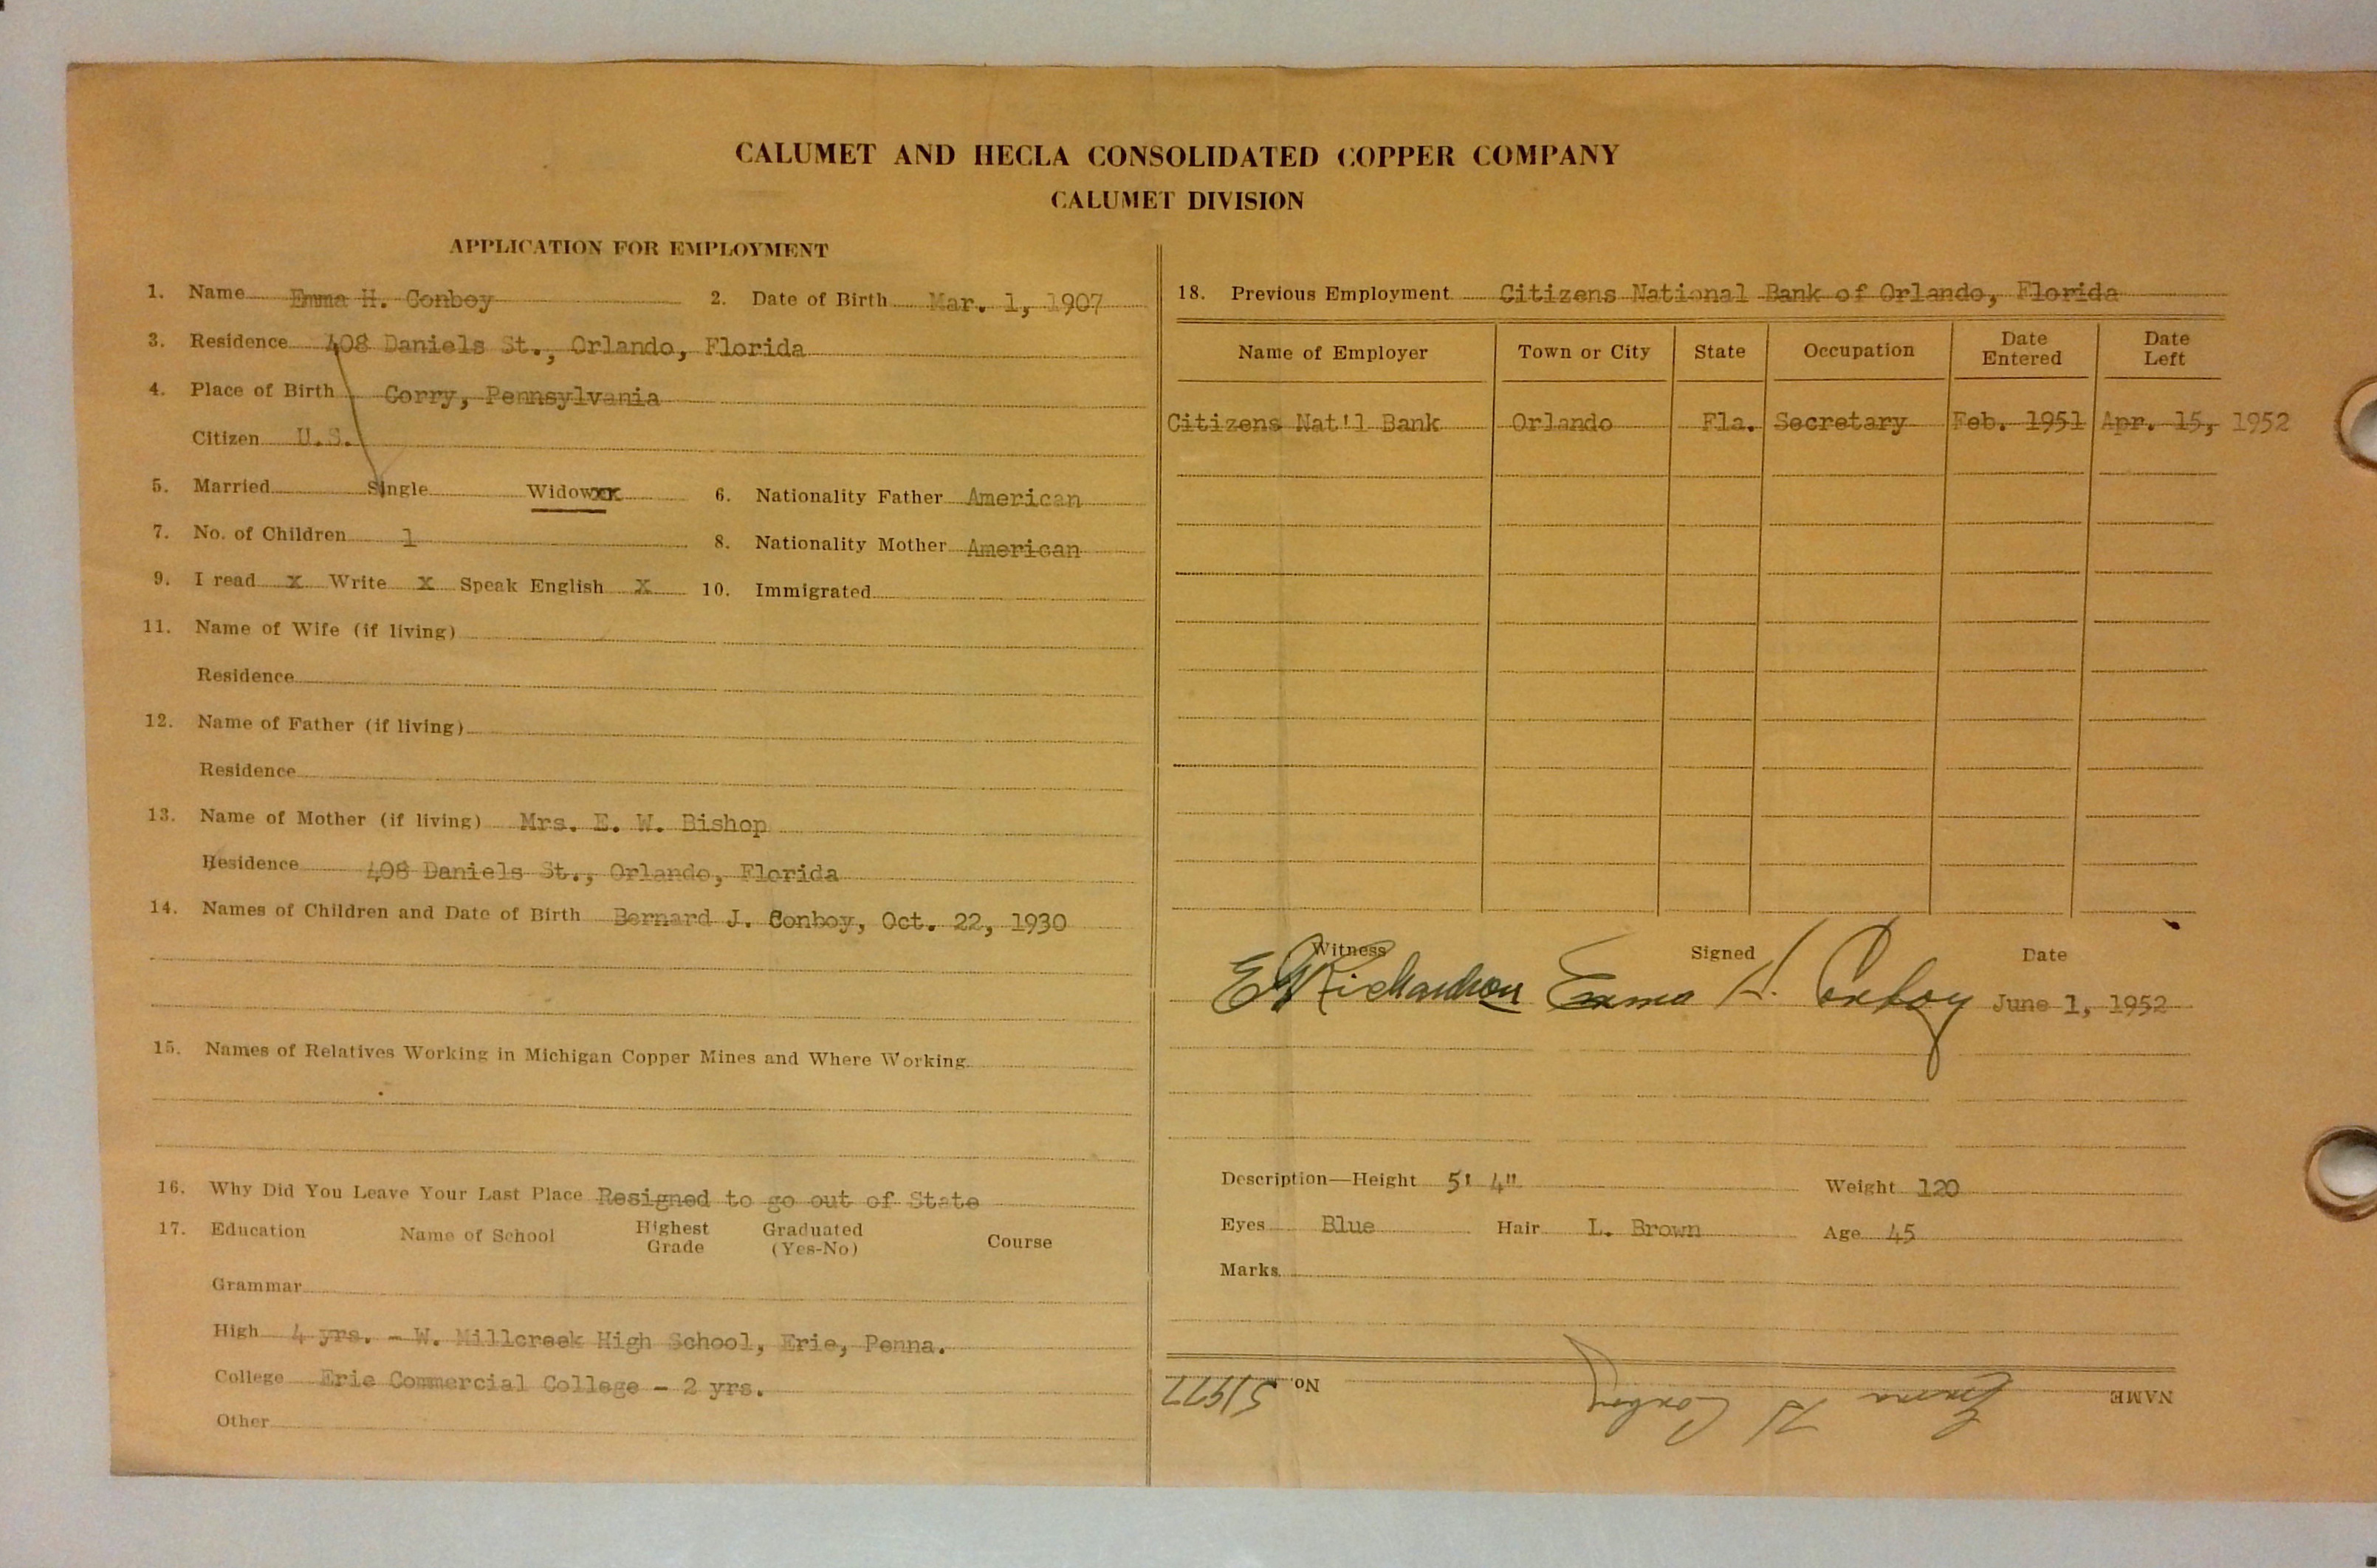 CALUMET AND HECLA CONSOLIDATED COPPER COMPANY
CALUMET DIVISION
APPLICATION FOR EMPLOYMENT
1. Name Emma H. Conboy 2. Date of Birth Mar. 1, 1907
3. Residence 408 Daniels St., Orlando, Florida
4. Place of Birth Corry, Pennsylvania
Citizen U.S.
5. Married Single Widowxx 6. Nationality Father American
7. No. of Children 1 8. Nationality Mother American
9. I read x Write x Speak English X 10. Immigrated
11. Name of Wife (if living)
Residence
12. Name of Father (if living)
Residence
13. Name of Mother (if living) Mrs. E. W. Bishop
Residence 408 Daniels St., Orlando, Florida
14. Names of Children and Date of Birth Bernard J. Conboy, Oct. 22, 1930
15. Names of Relatives Working in Michigan Copper Mines and Where Working
16. Why Did You Leave Your Last Place Resigned to go out of State
17. Education Name of School Highest Grade Graduated (Yes-No) Course
Grammar
High 4 yrs. - W. Millcreek High School, Erie, Penna.
College Erie Commercial College - 2 yrs.
Other
18. Previous Employment Citizens National Bank of Orlando, Florida
Name of Employer Town or City State Occupation Date Entered Date Left
Citizens Nat'l Bank Orlando Fla. Secretary Feb. 1951 Apr. 15, 1952
Witness Signed Date
Richardson Emma H. Conboy June 1, 1952
Description—Height 5' 4" Weight 120
Eyes Blue Hair L. Brown Age 45
Marks
NAME Emma H Conboy No.